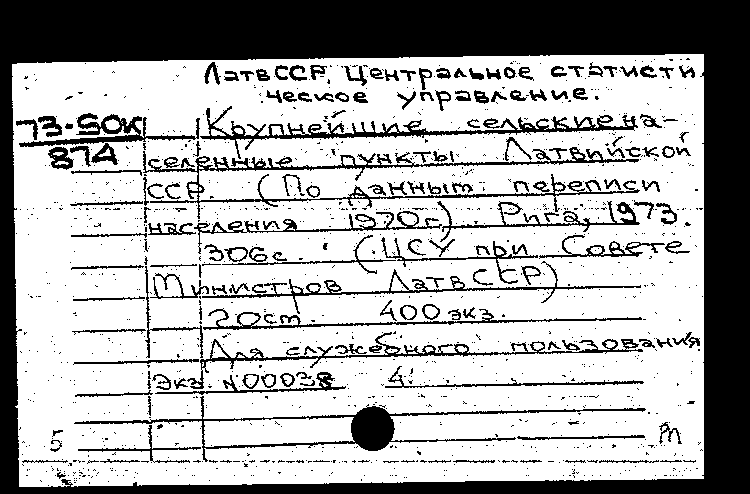 ЛатвССР. Центральное статисти
ческое управление.
73-50К
874
Крупнейшие сельские на-
селенные пункты Латвийской
ССР. (По данным переписи
населения 1970 г.) Рига, 1973.
306 с. (ЦСУ при Совете
Министров ЛатвССР)
400 экз.
Для служебного пользования
Экз. N00038 4.
5 m